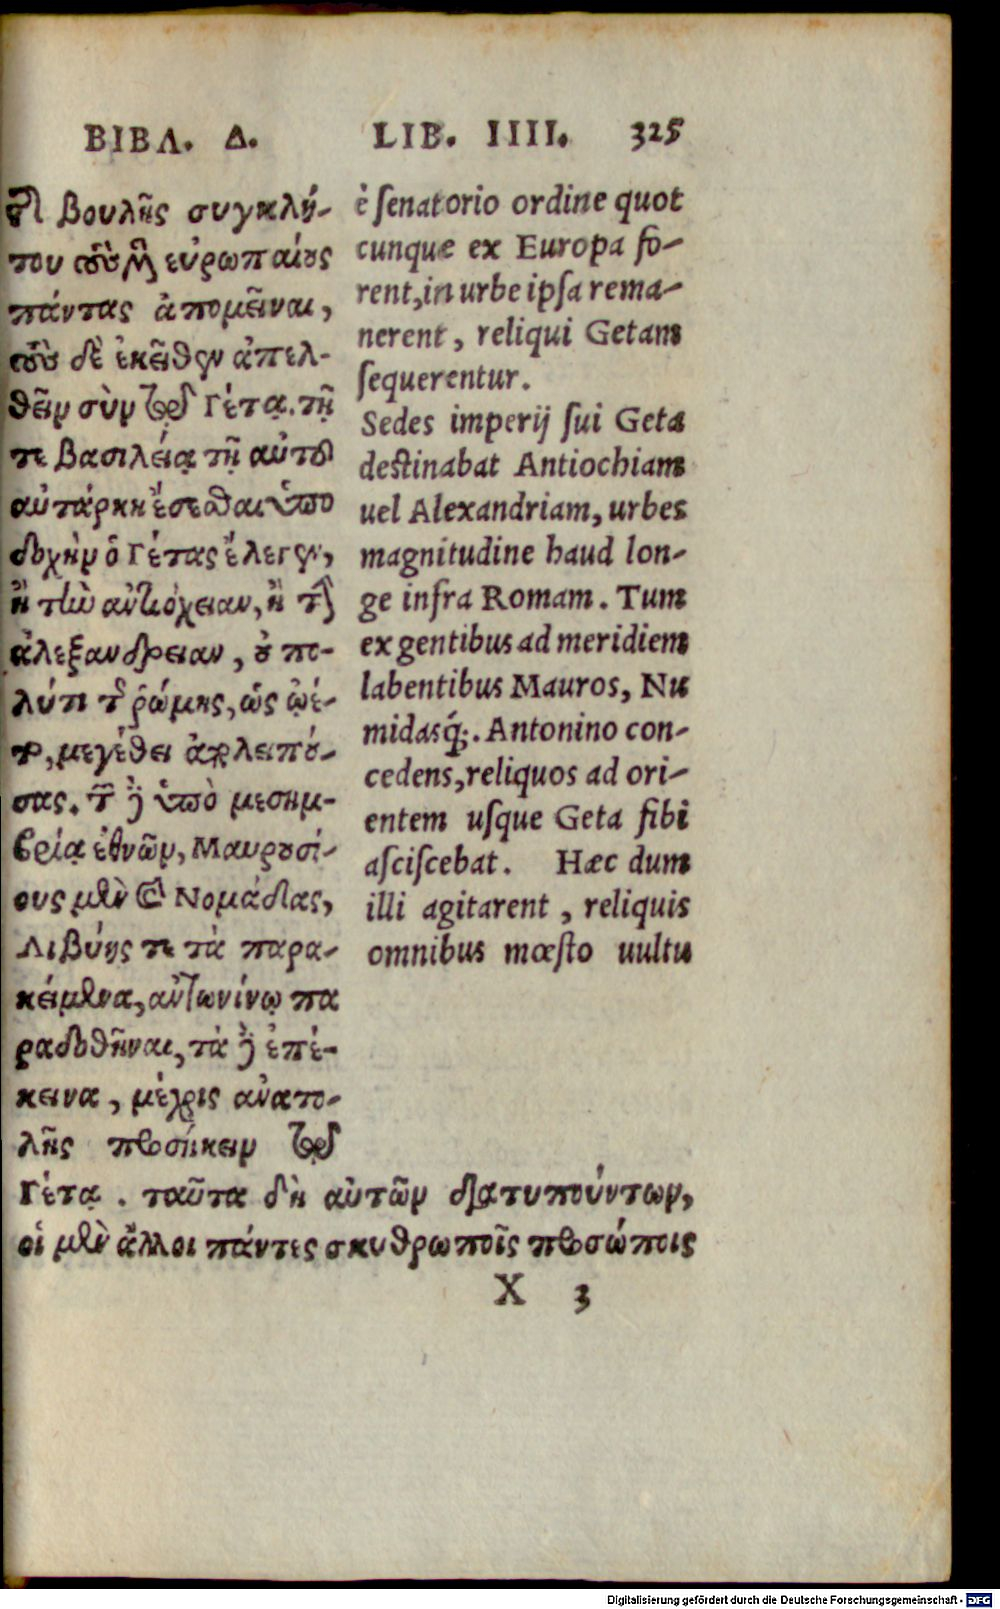 ΒΙΒΛ. Δ.
LIB. IIII. 325
τῆς βουλῆς συγκλή-
του τοὺς μὲν εὐρωπαίους
πάντας ἀπομεῖναι,
τοὺς δὲ ἐκεῖθεν ἀπελ-
θεῖν σὺν τῷ Γέτᾳ. τῇ
τε βασιλείᾳ τῇ αὐτοῦ
αὐτάρκη ἔσεσθαι ὑπο
δοχὴν ὁ Γέτας ἔλεγεν,
ἢ τὴν ἀντιόχειαν, ἢ τὴν
ἀλεξανδρειαν, οὐ πο-
λύ τι τῆς ῥώμης, ὡς ᾤε-
το, μεγέθει ἀπολειπού-
σας. τῶν δὲ ὑπὸ μεσημ-
βρίᾳ ἐθνῶν, Μαυρουσί-
ους μὲν καὶ Νομάδας,
Λιβύης τε τὰ παρα-
κείμενα, αντωνίνῳ πα
ραδοθῆναι, τὰ δὲ ἐπέ-
κεινα, μέχρις ανατο-
λῆς προσήκειν τῷ
Γέτᾳ. ταῦτα δὴ αὐτῶν διατυπούντων,
οἱ μὲν ἄλλοι πάντες σκυθρωποῖς προσώποις
è senatorio ordine quot
cunque ex Europa fo-
rent, in urbe ipsa rema-
nerent, reliqui Getam
sequerentur.
Sedes imperij sui Geta
destinabat Antiochiam
uel Alexandriam, urbes
magnitudine haud lon-
ge infra Romam. Tum
ex gentibus ad meridiem
labentibus Mauros, Nu
midasq́;. Antonino con-
cedens, reliquos ad ori-
entem usque Geta sibi
asciscebat. Hæc dum
illi agitarent, reliquis
omnibus mœsto uultu
X 3
Digitalisierung gefördert durch die Deutsche Forschungsgemeinschaft - DFG